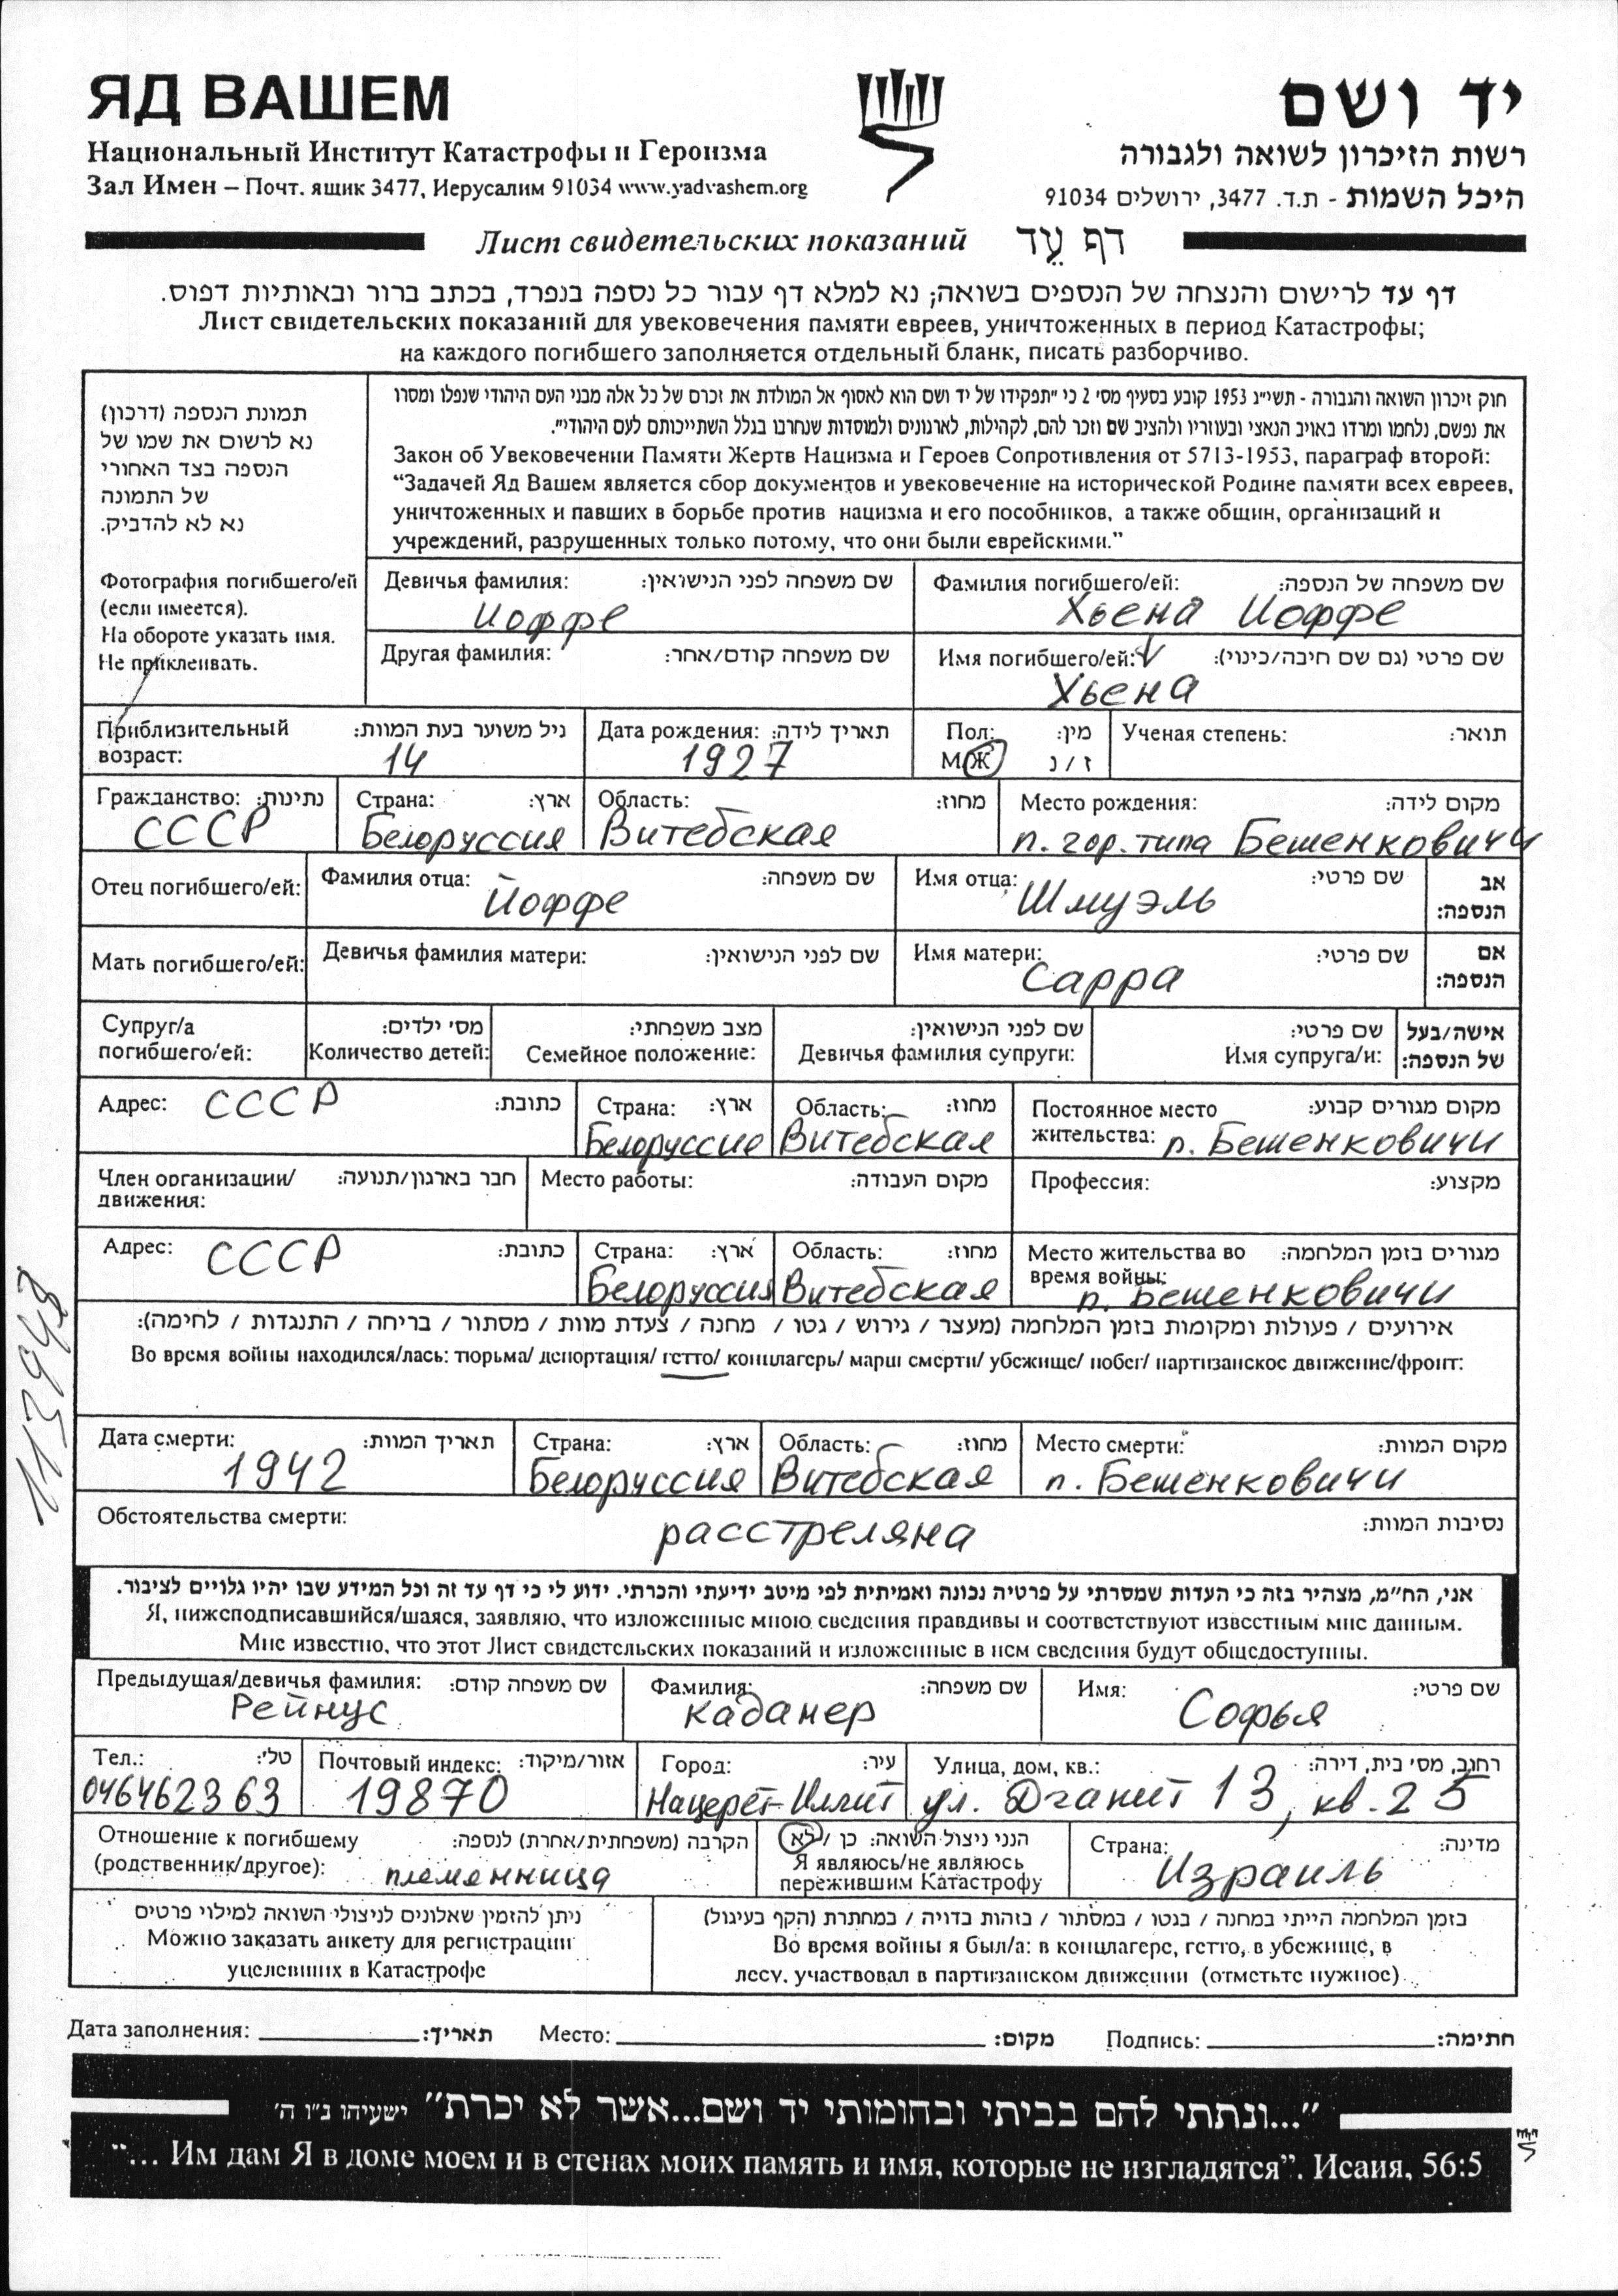 ЯД ВАШЕМ
יד ושם
Национальный Институт Катастрофы и Героизма
רשות הזיכרון לשואה ולגבורה
Зал Имен – Почт. ящик 3477, Иерусалим 91034 www.yadvashem.org
היכל השמות - ת.ד. 3477, ירושלים 91034
Лист свидетельских показаний דף עֵד
דף עד לרישום והנצחה של הנספים בשואה; נא למלא דף עבור כל נספה בנפרד, בכתב ברור ובאותיות דפוס.
Лист свидетельских показаний для увековечения памяти евреев, уничтоженных в период Катастрофы;
на каждого погибшего заполняется отдельный бланк, писать разборчиво.
תמונת הנספה (דרכון)
נא לרשום את שמו של
הנספה בצד האחורי
של התמונה
נא לא להדביק.
Фотография погибшего/ей
(если имеется).
На обороте указать имя.
Не приклеивать.
חוק זיכרון השואה והגבורה - תשי"ג 1953 קובע בסעיף מס' 2 כי "תפקידו של יד ושם הוא לאסוף אל המולדת את זכרם של כל אלה מבני העם היהודי שנפלו ומסרו
את נפשם, נלחמו ומרדו באויב הנאצי ובעוזריו ולהציב שם וזכר להם, לקהילות, לארגונים ולמוסדות שנחרבו בגלל השתייכותם לעם היהודי".
Закон об Увековечении Памяти Жертв Нацизма и Героев Сопротивления от 5713-1953, параграф второй:
“Задачей Яд Вашем является сбор документов и увековечение на исторической Родине памяти всех евреев,
уничтоженных и павших в борьбе против нацизма и его пособников, а также общин, организаций и
учреждений, разрушенных только потому, что они были еврейскими.”
Девичья фамилия: שם משפחה לפני הנישואין:
Иоффе
Фамилия погибшего/ей: שם משפחה של הנספה:
Хьена Иоффе
Другая фамилия: שם משפחה קודם/אחר:
Имя погибшего/ей: שם פרטי (גם שם חיבה/כינוי):
Хьена
Приблизительный גיל משוער בעת המוות:
возраст: 14
Дата рождения: תאריך לידה:
1927
Пол: מין:
М/Ж ז / נ
Ученая степень: תואר:
Гражданство: נתינות:
СССР
Страна: ארץ:
Белоруссия
Область: מחוז:
Витебская
Место рождения: מקום לידה:
п. гор. типа Бешенковичи
Отец погибшего/ей: Фамилия отца: שם משפחה:
Йоффе
Имя отца: שם פרטי:
Шмуэль
אב
הנספה:
Мать погибшего/ей: Девичья фамилия матери: שם לפני הנישואין:
Имя матери: שם פרטי:
Сарра
אם
הנספה:
Супруг/а
погибшего/ей:
מס' ילדים:
Количество детей:
מצב משפחתי:
Семейное положение:
שם לפני הנישואין:
Девичья фамилия супруги:
שם פרטי:
Имя супруга/и:
אישה/בעל
של הנספה:
Адрес: СССР כתובת:
Страна: ארץ:
Белоруссия
Область: מחוז:
Витебская
Постоянное место מקום מגורים קבוע:
жительства: п. Бешенковичи
Член организации/ חבר בארגון/תנועה:
движения:
Место работы: מקום העבודה:
Профессия: מקצוע:
Адрес: СССР כתובת:
Страна: ארץ:
Белоруссия
Область: מחוז:
Витебская
Место жительства во מגורים בזמן המלחמה:
время войны:
п. Бешенковичи
אירועים / פעולות ומקומות בזמן המלחמה (מעצר / גירוש / גטו / מחנה / צעדת מוות / מסתור / בריחה / התנגדות / לחימה):
Во время войны находился/лась: тюрьма/ депортация/ гетто/ концлагерь/ марш смерти/ убежище/ побег/ партизанское движение/фронт:
1139498
Дата смерти: תאריך המוות:
1942
Страна: ארץ:
Белоруссия
Область: מחוז:
Витебская
Место смерти: מקום המוות:
п. Бешенковичи
Обстоятельства смерти: נסיבות המוות:
расстреляна
אני, הח"מ, מצהיר בזה כי העדות שמסרתי על פרטיה נכונה ואמיתית לפי מיטב ידיעתי והכרתי. ידוע לי כי דף עד זה וכל המידע שבו יהיו גלויים לציבור.
Я, нижеподписавшийся/шаяся, заявляю, что изложенные мною сведения правдивы и соответствуют известным мне данным.
Мне известно, что этот Лист свидетельских показаний и изложенные в нем сведения будут общедоступны.
Предыдущая/девичья фамилия: שם משפחה קודם:
Рейнус
Фамилия: שם משפחה:
Каданер
Имя: שם פרטי:
Софья
Тел.: טל':
046462363
Почтовый индекс: אזור/מיקוד:
19870
Город: עיר:
Нацерет-Иллит
Улица, дом, кв.: רחוב, מס' בית, דירה:
ул. Дганит 13, кв. 25
Отношение к погибшему הקרבה (משפחתית/אחרת) לנספה:
(родственник/другое): племянница
הנני ניצול השואה: כן / לא
Я являюсь/не являюсь
пережившим Катастрофу
Страна: מדינה:
Израиль
ניתן להזמין שאלונים לניצולי השואה למילוי פרטים
Можно заказать анкету для регистрации
уцелевших в Катастрофе
בזמן המלחמה הייתי במחנה / בגטו / במסתור / בזהות בדויה / במחתרת (הקף בעיגול)
Во время войны я был/а: в концлагере, гетто, в убежище, в
лесу, участвовал в партизанском движении (отметьте нужное)
Дата заполнения: תאריך: Место: מקום: Подпись: חתימה:
"...ונתתי להם בביתי ובחומותי יד ושם...אשר לא יכרת" ישעיהו נ"ו ה'
“... Им дам Я в доме моем и в стенах моих память и имя, которые не изгладятся”. Исаия, 56:5